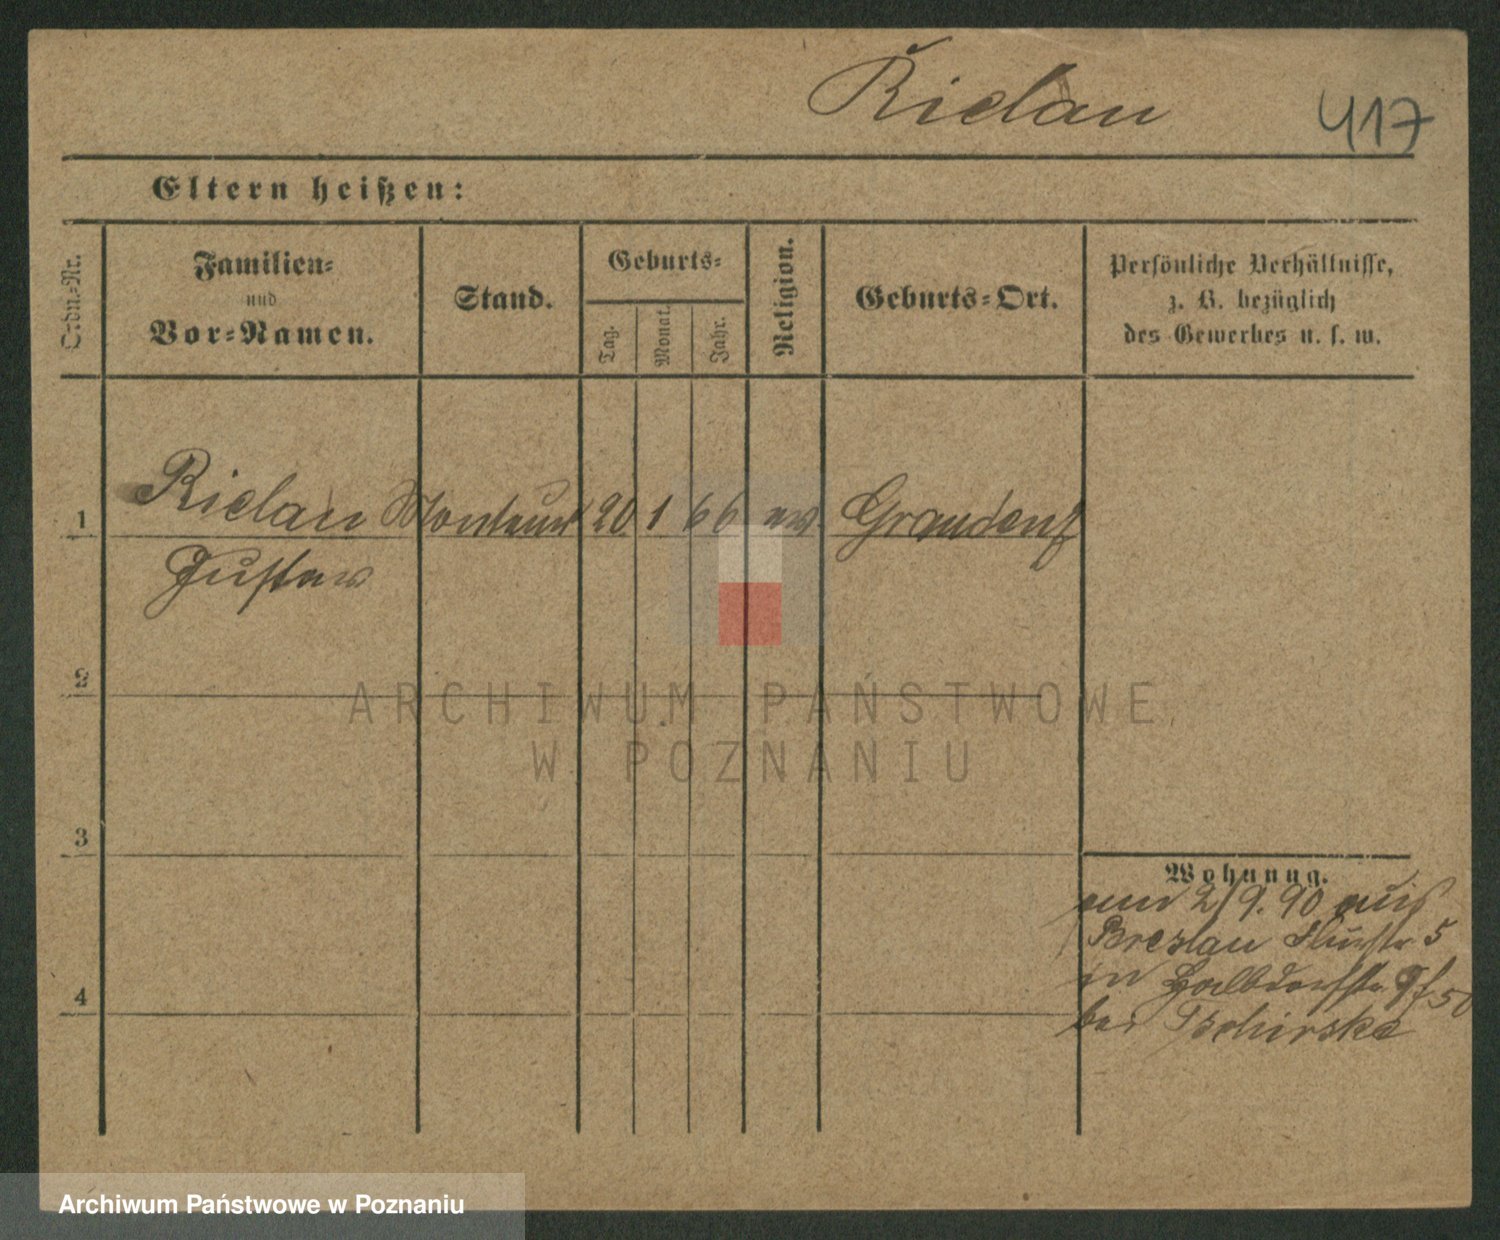 Rielau
417
Eltern heißen:
Ordn.-Nr.
Familien-
und
Vor-Namen.
Stand.
Geburts-
Tag.
Monat.
Jahr.
Religion.
Geburts-Ort.
Persönliche Verhältnisse,
z. B. bezüglich
des Gewerbes u. s. w.
1
Rielau Monteur 20 1 66 ev Graudenz
Gustav
2
3
4
Wohnung.
am 2/9. 90 aus
Breslau 5
in Halbdorfstr.
bei
ARCHIWUM PAŃSTWOWE
W POZNANIU
Archiwum Państwowe w Poznaniu